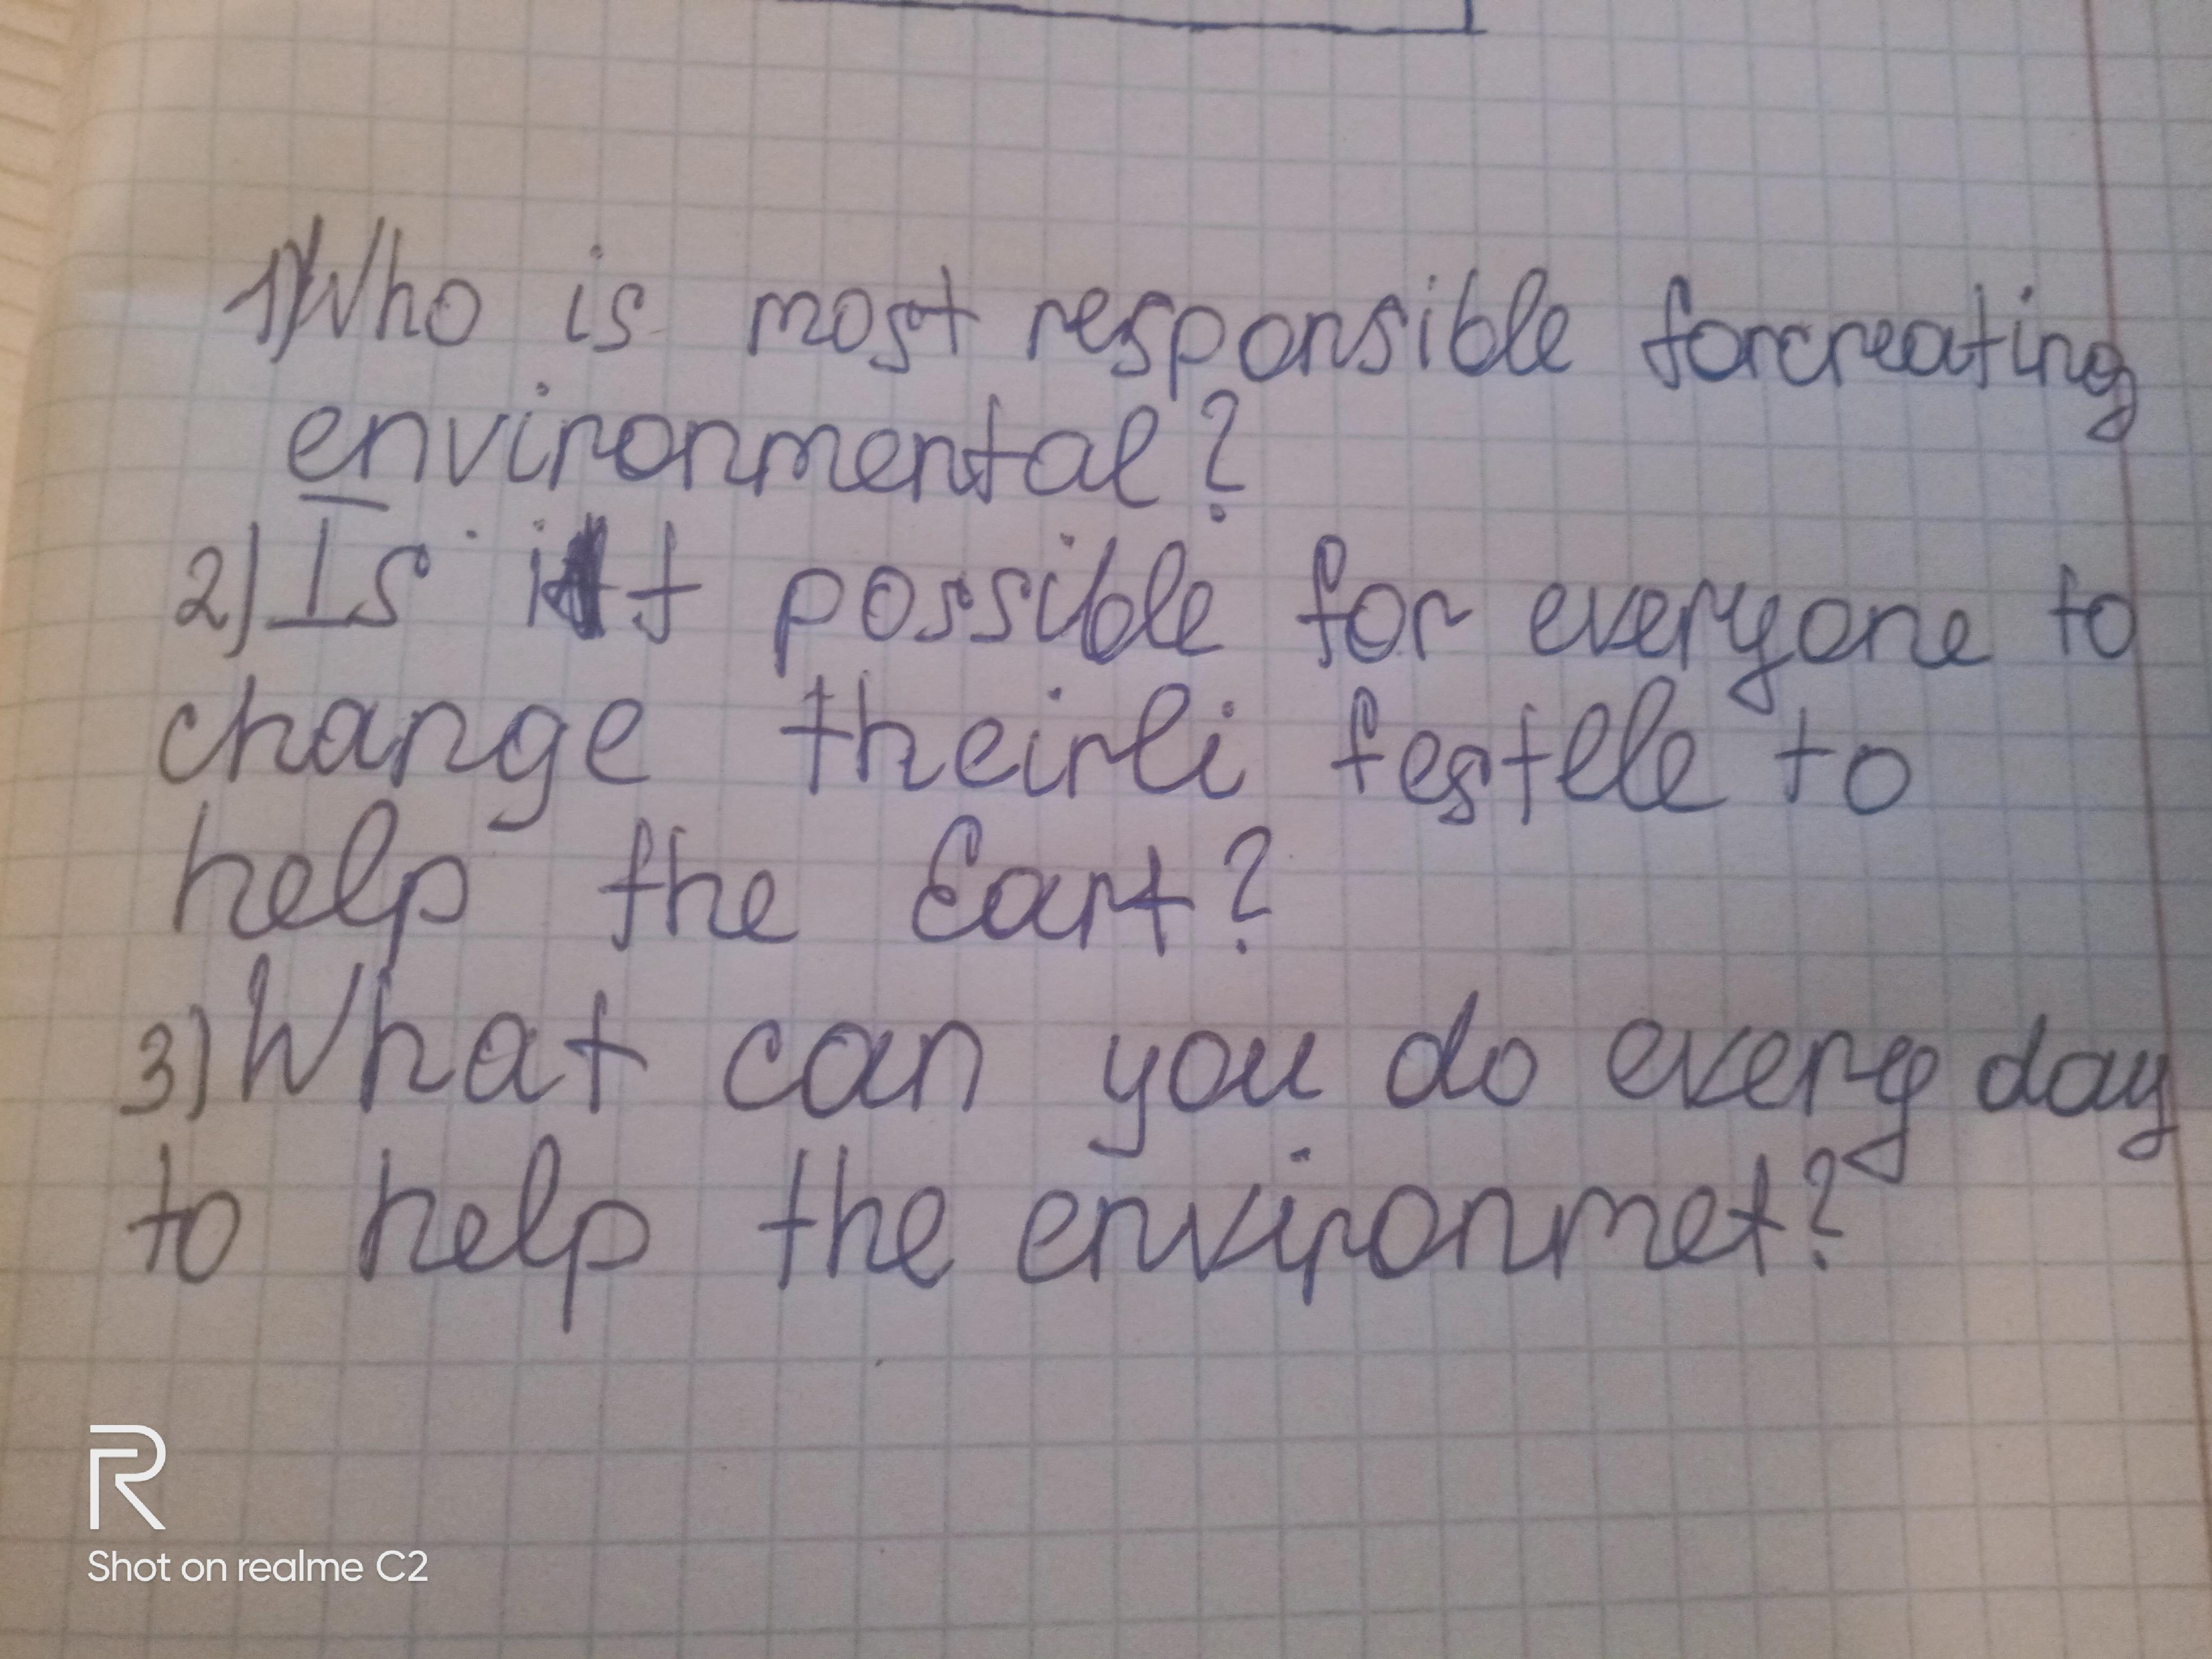 1) Who is most responsible forcreating
environmental?
2) Is it possible for everyone to
change theirli festele to
help the Eart?
3) What can you do every day
to help the environmet?
R
Shot on realme C2